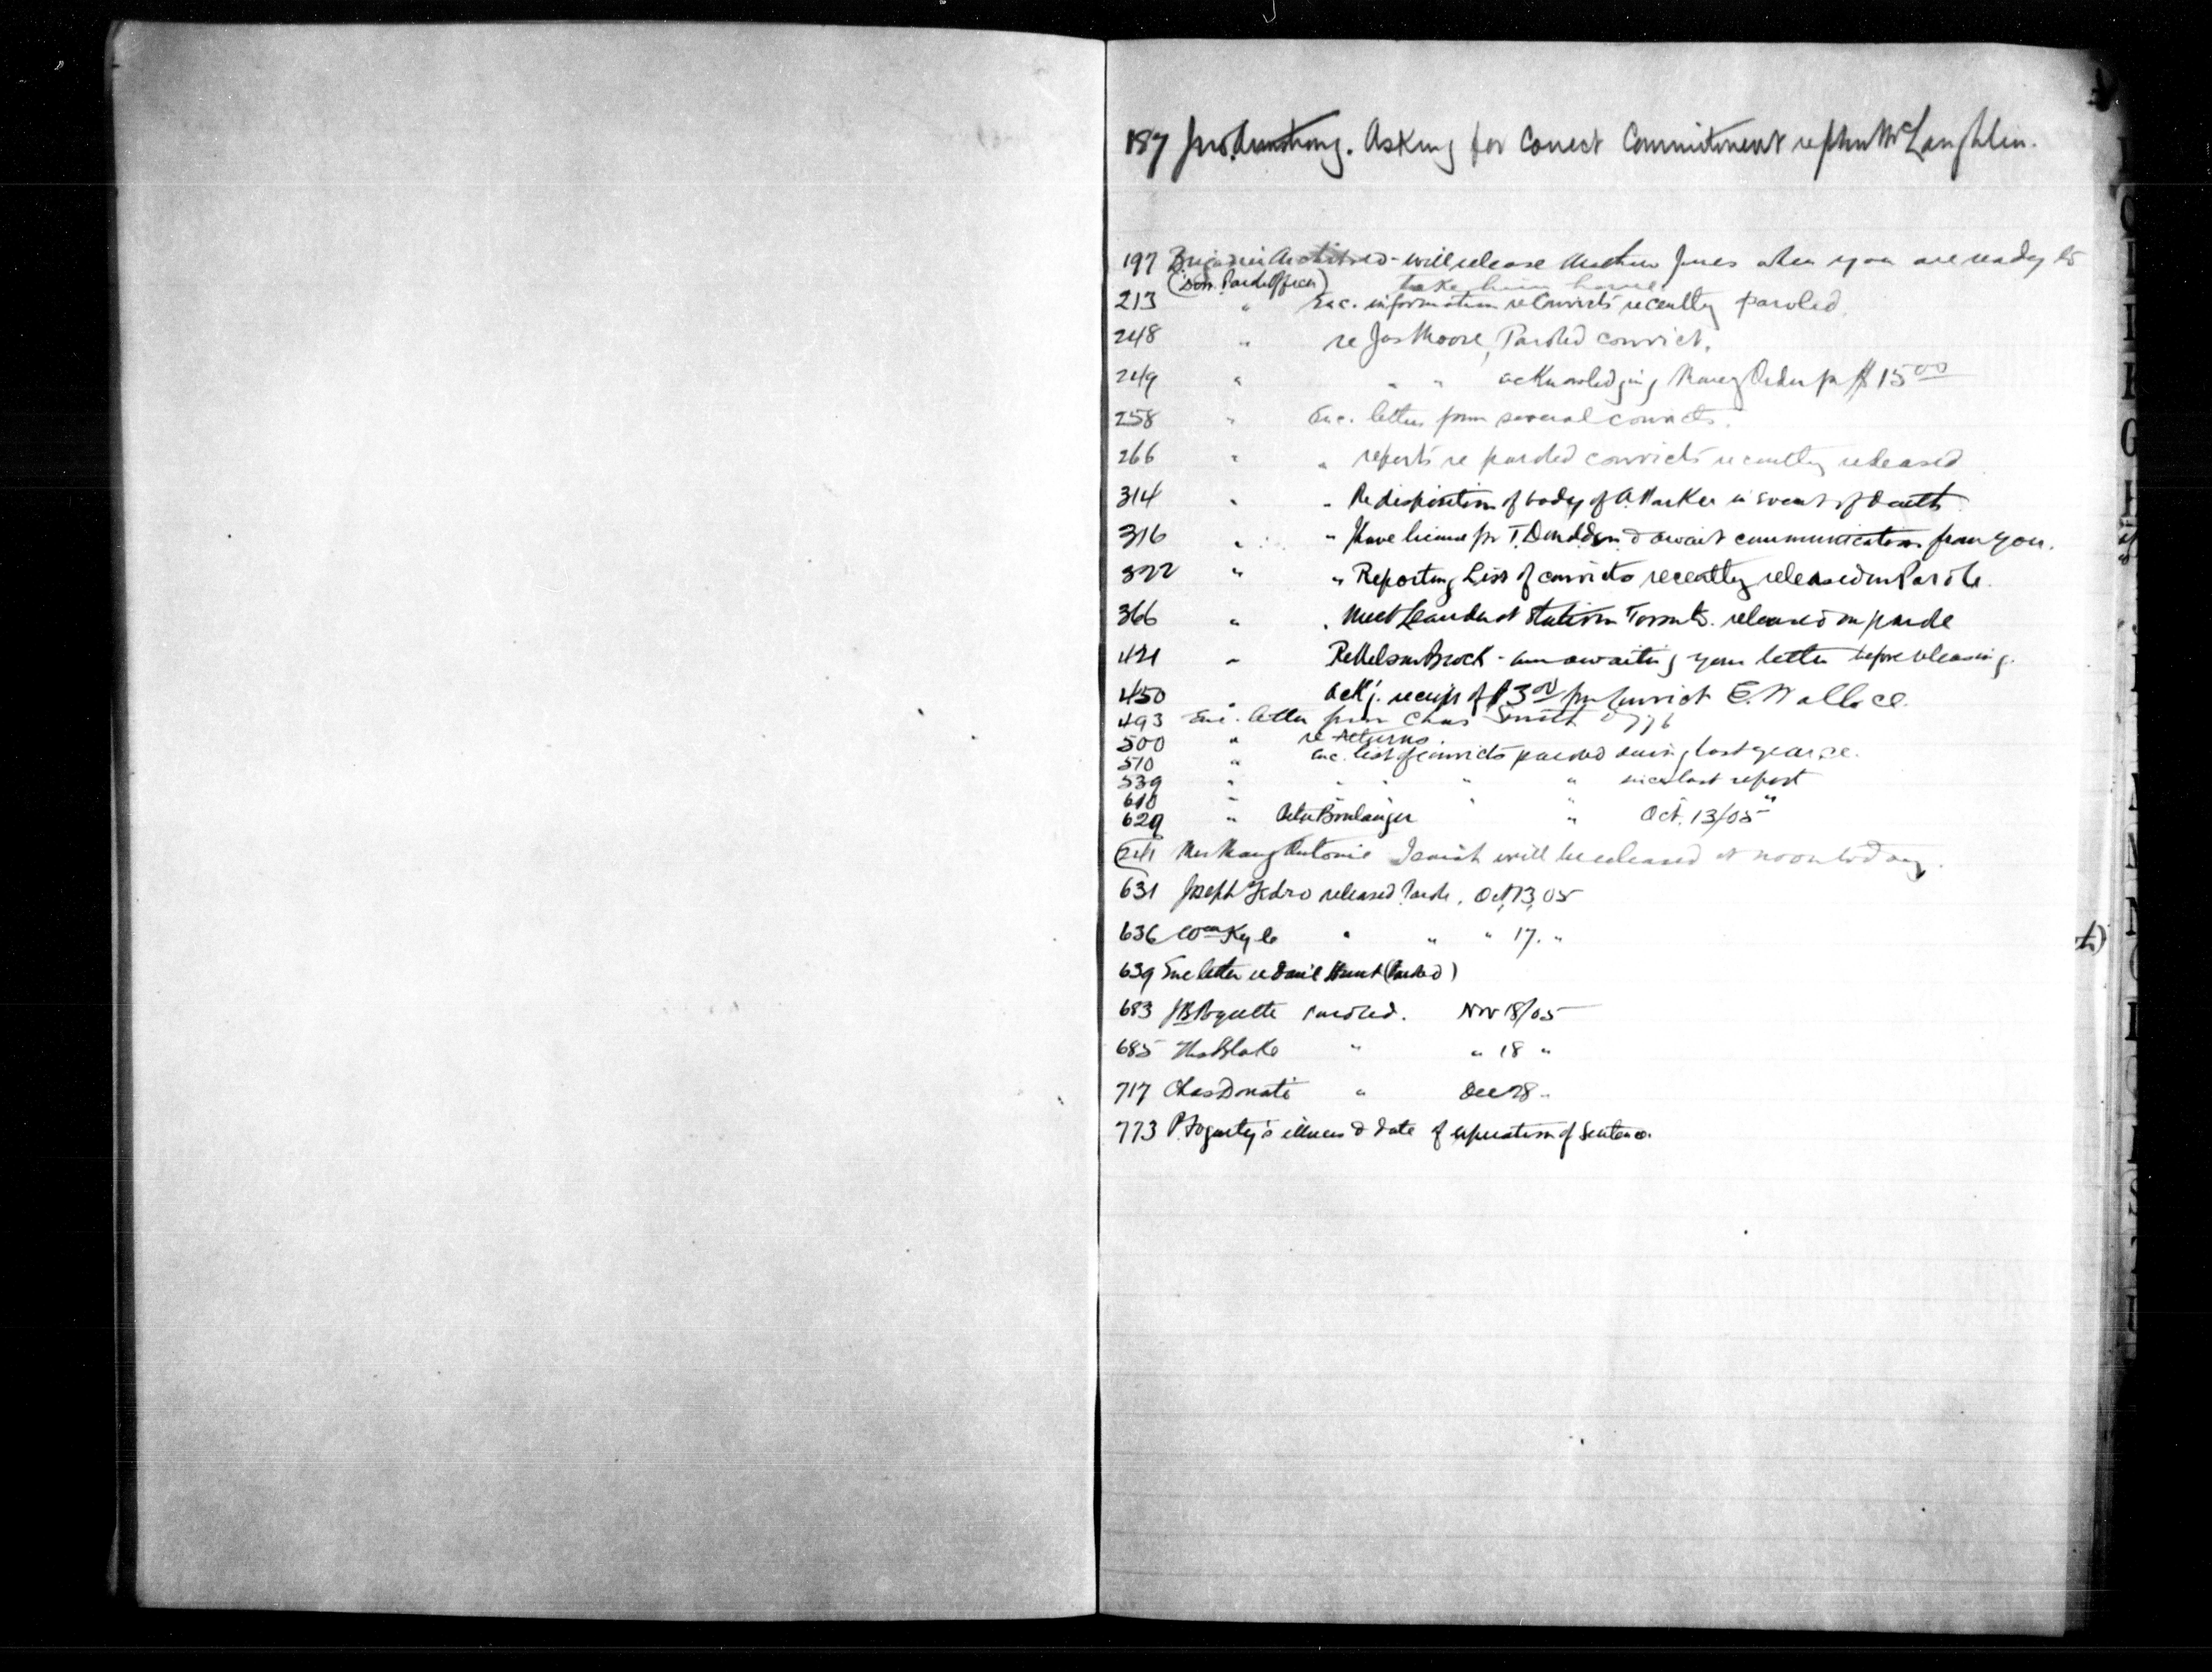 187 Jno. Armstrong. Asking for Correct Commitment re John McLaughlin.
197 Brigadier Archibald - will release Matthew Jones when you are ready to
(Dom. Parole Officer) take him home.
213 " Enc. information re Convicts recently paroled.
248 " re Jas Moore, Paroled convict.
249 " " " acknowledging Money Order for $15.00
258 " Enc. letters from several convicts.
266 " " reports re paroled convicts recently released
314 " " Re disposition of body of A. Parker in event of death
316 " " Have license for T. Donaldson & await communication from you.
322 " " Reporting List of convicts recently released on Parole.
366 " " Meet Leander at Station Toronto. released on parole
421 " Re Nelson Brock - am awaiting your letter before releasing.
450 " Ack'g. receipt of $3.00 for Convict E. Wallace.
493 Enc. letter from Chas Smith
500 " re returns.
510 " Enc. list of convicts paroled during last year
539 " " " " " since last report
610 " " " " "
629 " Peter Boulanger " Oct. 13/05
(241 Mrs Mary Antonie will be released at noon today.
631 Joseph Fedro released Parole. Oct, 13, 05
636 Wm Kyle " " " 17. "
639 Enc letter re Dan'l Hunt (Paroled)
683 JB Paquette paroled. Nov 18/05
685 Thos Blake " " 18 "
717 Chas Donati " Dec 28 "
773 P. Fogarty's illness & date of expiration of Sentence.